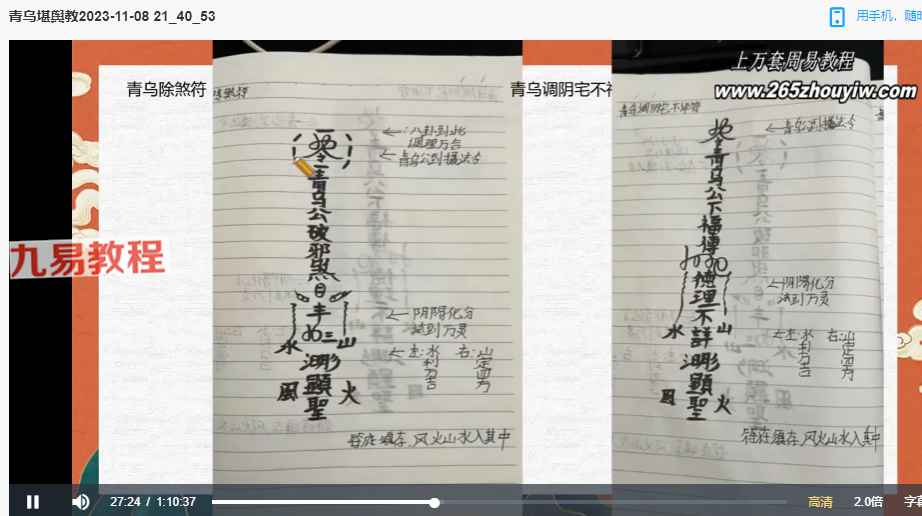 青乌堪舆教2023-11-08 21_40_53
用手机，随时
上万套周易教程
www.265zhouyiw.com
青乌除煞符
青乌调阴宅不祥
九易教程
八卦到此
调理万吉
青乌公到播法令
青乌公破邪煞
阴阳化分
法到万灵
水
山
左:水
利
万
吉
右:山
定
四
方
顯聖
風
火
符在镇存,风火山水入其中
青乌调阴宅不祥符
青乌公到播法令
青乌公下福德
理不詳
阴阳化分
法到万灵
水
山
左:水
利
万
吉
右:山
定
四
方
顯聖
風
火
符在镇存,风火山水入其中
27:24 / 1:10:37
高清
2.0倍
字幕